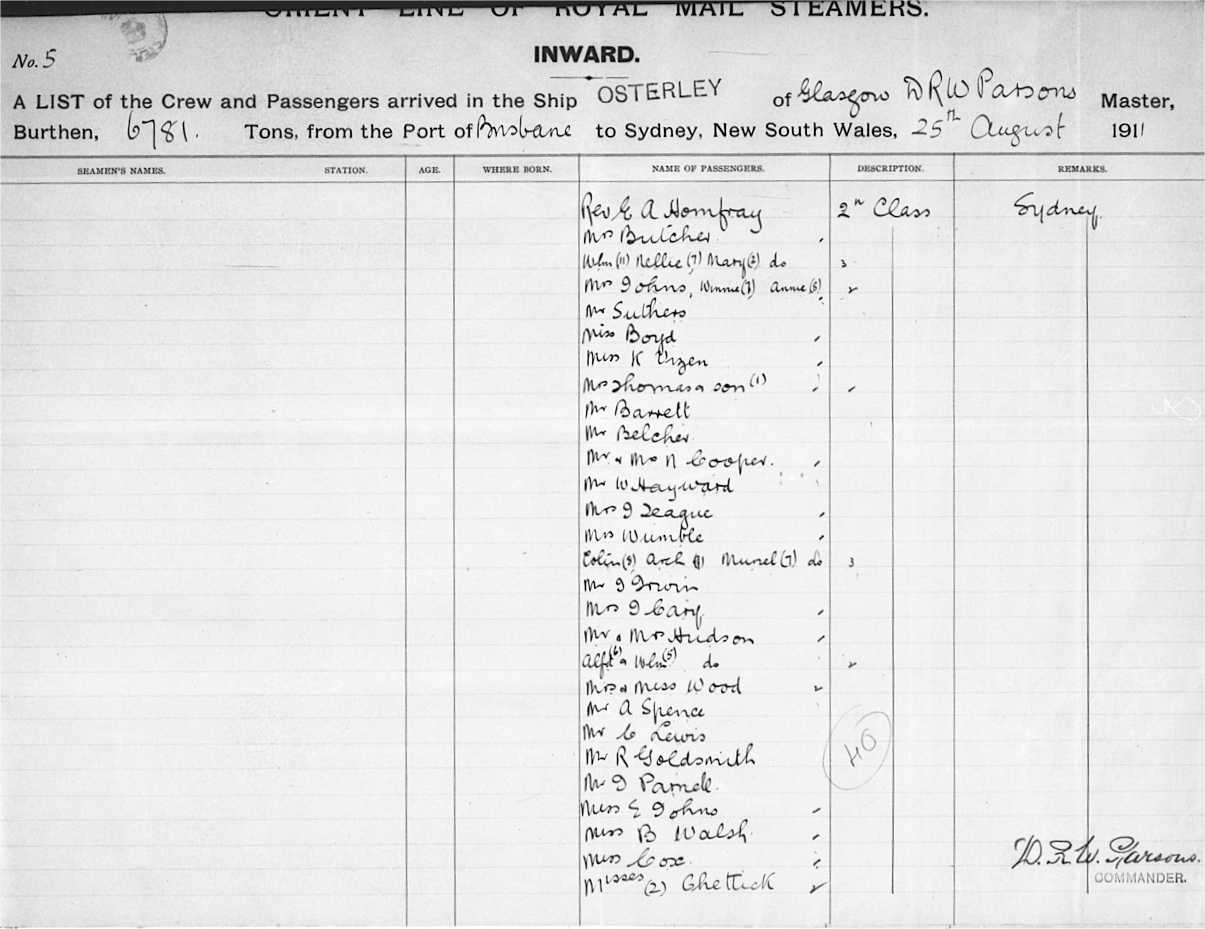 ORIENT LINE OF ROYAL MAIL STEAMERS.
No. 5
INWARD.
A LIST of the Crew and Passengers arrived in the Ship OSTERLEY of Glasgow D R W Parsons Master,
Burthen, 6781. Tons, from the Port of Brisbane to Sydney, New South Wales, 25th August 1911
SEAMEN'S NAMES. STATION. AGE. WHERE BORN. NAME OF PASSENGERS. DESCRIPTION. REMARKS.
Rev E A Homfray 2n Class Sydney.
Mrs Butcher
Wlm (11) Nellie (7) Mary (2) do 3
Mrs Johns, Winnie (7) Annie (5)
Mr Suthers
Miss Boyd
Miss K
Mrs Thomas & son (1)
Mr Barrett
Mr Belcher
Mr & Mrs N Cooper.
Mr W Hayward
Mrs J Teague
Mrs Wumble
Colin Arch Muriel (7) do 3
Mr J Irwin
Mrs J Cary
Mr & Mrs Hudson
Alfd (6) & Wlm (5) do
Mrs & Miss Wood
Mr A Spence
Mr C Lewis
Mr R Goldsmith
40
Mr J Parnell.
Miss E Johns
Miss B Walsh
Miss Cox.
D. R. W. Parsons.
COMMANDER.
Misses (2) Chettick